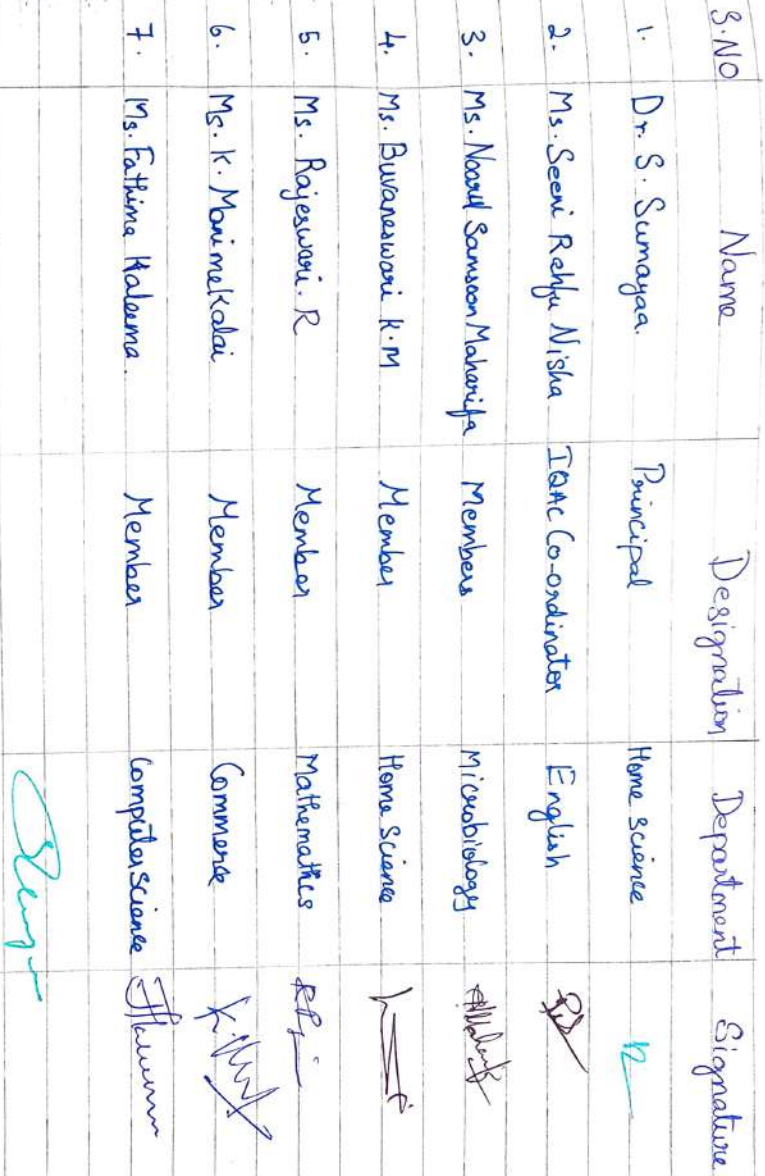 S.NO Name Designation Department Signature
1. Dr. S. Sumayaa. Principal Home science
2. Ms. Seeni Rehfu Nisha IQAC Co-ordinator English
3. Ms. Noorul Samsoon Maharifa Members Microbiology
4. Ms. Buvaneswari K.M Member Home Science
5. Ms. Rajeswari. R Member Mathematics
6. Ms. K. Manimekalai Member Commerce
7. Ms. Fathima Haleema. Member Computer science